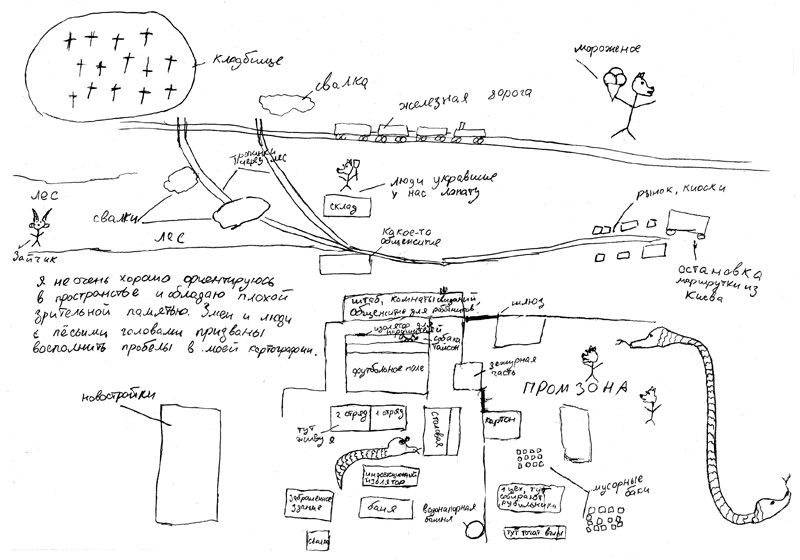 кладбище
свалка
железная дорога
мороженое
тропинки
через лес
лес
свалки
лес
зайчик
склад
люди укравшие
у нас лопату
какое-то
общежитие
рынок, киоски
остановка
маршрутки из
Киева
Я не очень хорошо ориентируюсь
в пространстве и обладаю плохой
зрительной памятью. Змеи и люди
с пёсьими головами призваны
восполнить пробелы в моей картографии.
штаб, комнаты свиданий
общежитие для
изолятор для
собака
Тайсон
футбольное поле
шлюз
дежурная
часть
ПРОМЗОНА
новостройки
2 отряд
1 отряд
тут
живу я
столовая
картон
инфекционный
изолятор
заброшенное
здание
баня
водонапорная
башня
свалка
1 цех, тут
собирают
рубильники
мусорные
баки